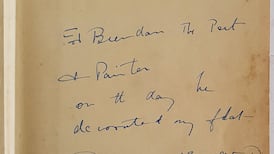 For Brendan the Poet
& Painter
on the day he
decorated my flat